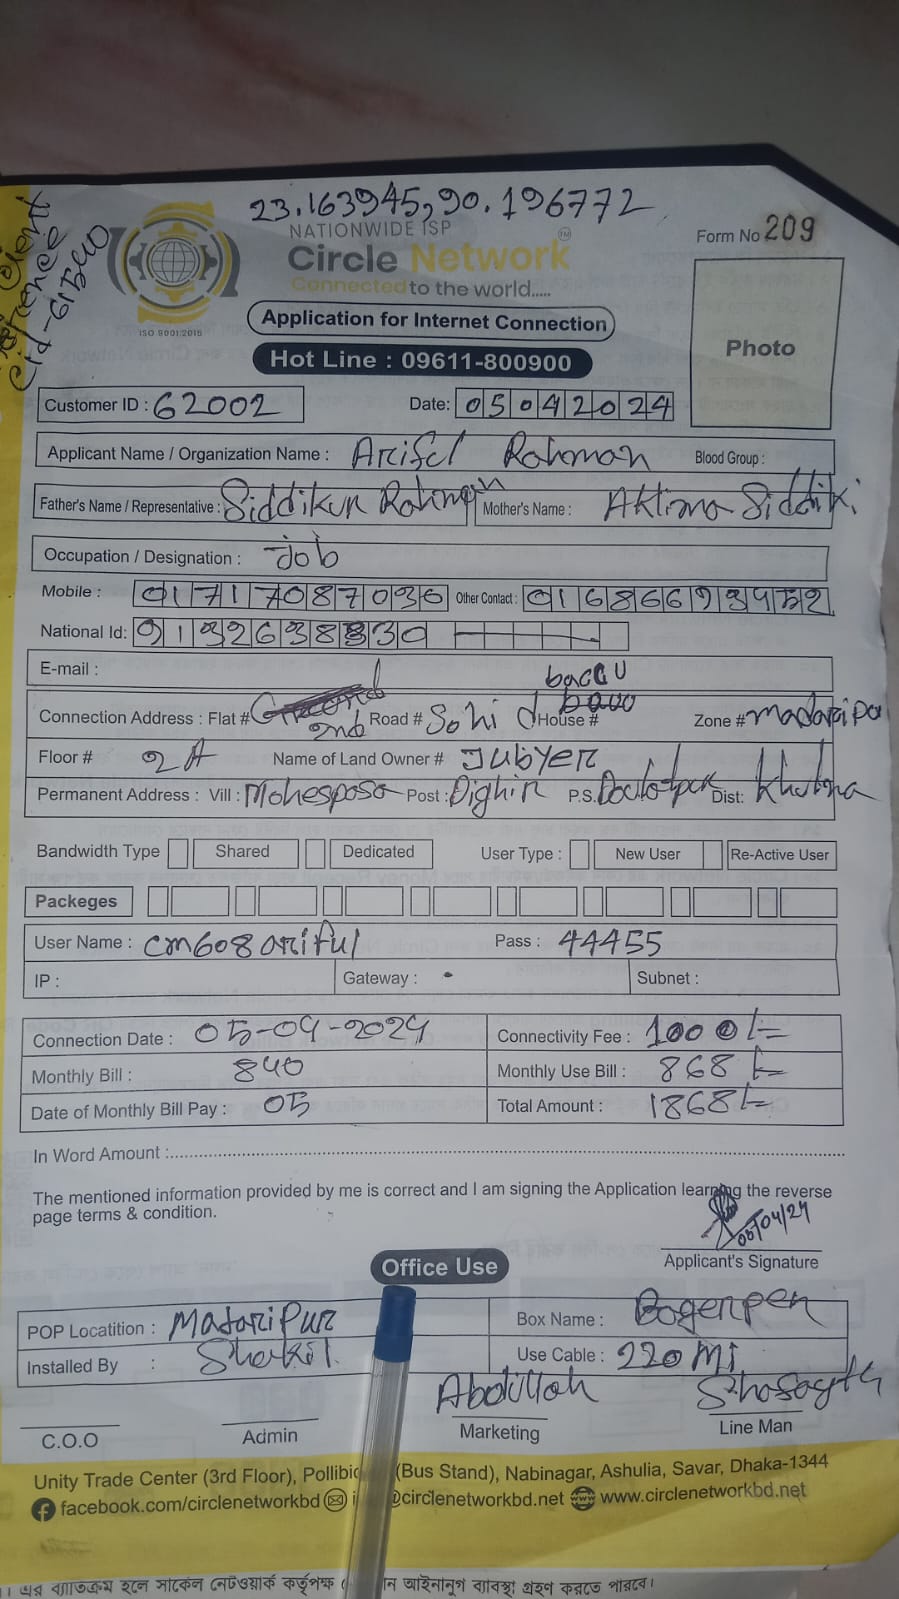 23.163945,90.196772
NATIONWIDE ISP
Form No 209
Circle Network TM
Connected to the world.....
ISO 9001:2015
Application for Internet Connection
Photo
Hot Line : 09611-800900
Cid-61540
Customer ID : 62002 Date: 05042024
Applicant Name / Organization Name : Rahman Blood Group :
Father's Name / Representative : Siddikur Rahman Mother's Name : Aktima Siddiki
Occupation / Designation : Job
Mobile : 01717087036 Other Contact :
National Id:
E-mail :
Connection Address : Flat # 2nd Road # Sohid House # Zone #
Floor # 2A Name of Land Owner # Jubyer
Permanent Address : Vill : Post : P.S. Dist: Khulna
Bandwidth Type Shared Dedicated User Type : New User Re-Active User
Packeges
User Name : cm608ariful Pass : 44455
IP : Gateway : Subnet :
Connection Date : 05-04-2024 Connectivity Fee : 1000/=
Monthly Bill : 840 Monthly Use Bill : 868/=
Date of Monthly Bill Pay : 05 Total Amount : 1868/=
In Word Amount :
The mentioned information provided by me is correct and I am signing the Application learning the reverse
page terms & condition.
05/04/24
Applicant's Signature
Office Use
POP Locatition : Madaripur Box Name :
Installed By : Shakil Use Cable : 220 Mi
Abdullah
C.O.O Admin Marketing Line Man
Unity Trade Center (3rd Floor), (Bus Stand), Nabinagar, Ashulia, Savar, Dhaka-1344
facebook.com/circlenetworkbd @circlenetworkbd.net www.circlenetworkbd.net
এর ব্যতিক্রম হলে সার্কেল নেটওয়ার্ক কর্তৃপক্ষ আইনানুগ ব্যবস্থা গ্রহণ করতে পারবে।